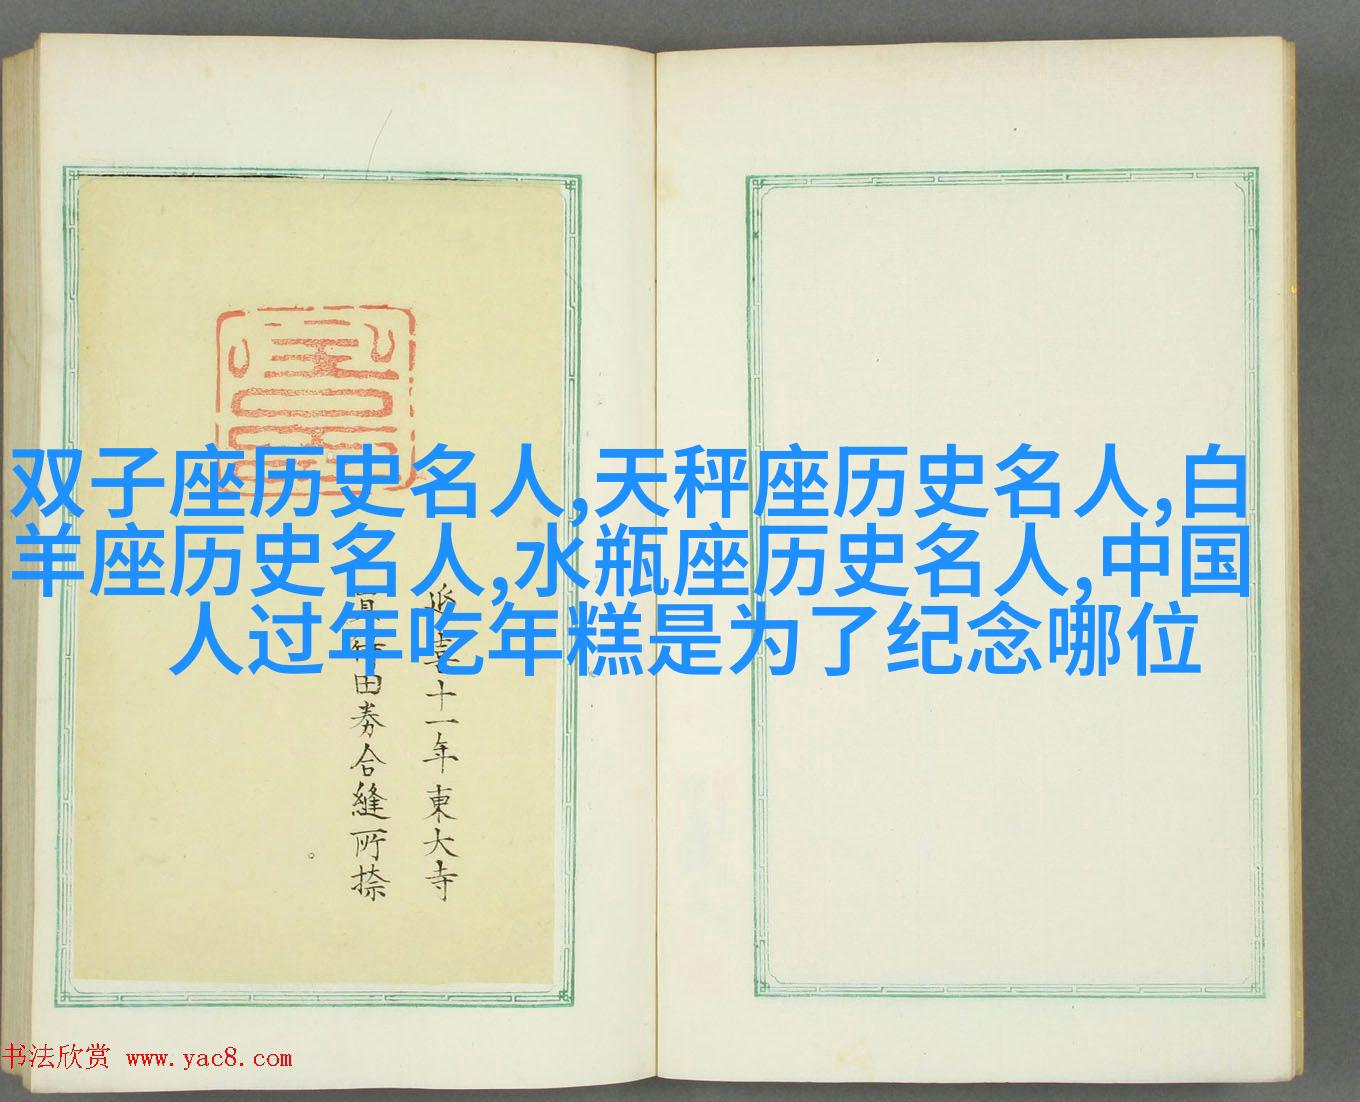 双子座历史名人,天秤座历史名人,白
羊座历史名人,水瓶座历史名人,中国
人过年吃年糕是为了纪念哪位
十一年東大寺
田券合縫所捺
书法欣赏 www.yac8.com